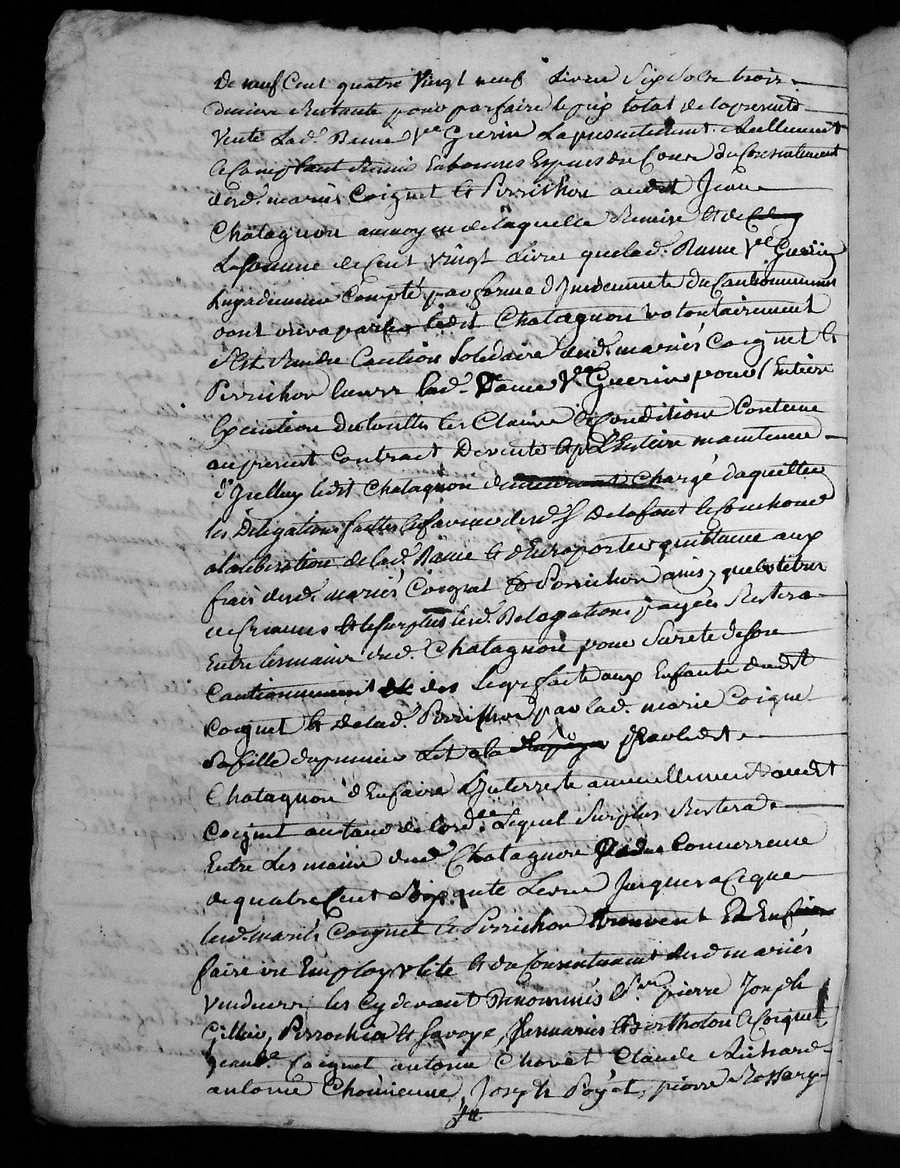 De neuf Cent quatre Vingt neuf Livres Six Sols trois
deniers Restants pour parfaire le prix total de la presente
Vente Lad. Dame Ve Guerin La presentement Reellement
et Comptant Remis En bonnes Especes du Cours du Consentement
desd. mariés Coignet et Perrichon audit Jean
Chatagnon au moyen de laquelle Remise et de
La somme de Cent Vingt Livres que lad. Dame Ve Guerin
Compté par forme d'Indemnité du Cautionnement
dont ledit Chatagnon volontairement
s'Est Rendu Caution Solidaire desd. mariés Coignet et
Perrichon Envers lad. Dame Ve Guerin pour l'Entiere
Execution de touttes les Clauses et Conditions Contenues
au present Contract De vente
ledit Chatagnon Chargé d'aquitter
les Délégations faittes En faveur desd. Srs Delafont
a la liberation de lad. Dame et d'En raporter quittance aux
frais desd. mariés Coignet et Perrichon
et le surplus lesd. Delegations payées Restera
Entre les mains dud. Chatagnon pour Sureté de son
Cautionnement et des Legs faits aux Enfants dudit
Coignet et de lad. Perrichon par lad. marie Coignet
Sa fille du premier Lit a la par ledit
Chatagnon d'En faire l'Interrest annuellement audit
Coignet au taux de l'ord.ce Lequel Surplus Restera
Entre Les mains dud. Chatagnon Concurrence
de quatre Cent Livres Jusques a ce que
lesd. mariés Coignet et Perrichon trouvent
faire un Employ utile et du Consentement desd. mariés
Vendeurs les Cy devant Denommés Srs pierre Joseph
Gillier, Perrochia et Savoye, Bertholon et Coignet
Jean Bte Coignet antoine Chovet Claude Richard
antoine Chomienne, Joseph Poyet, pierre Rossary